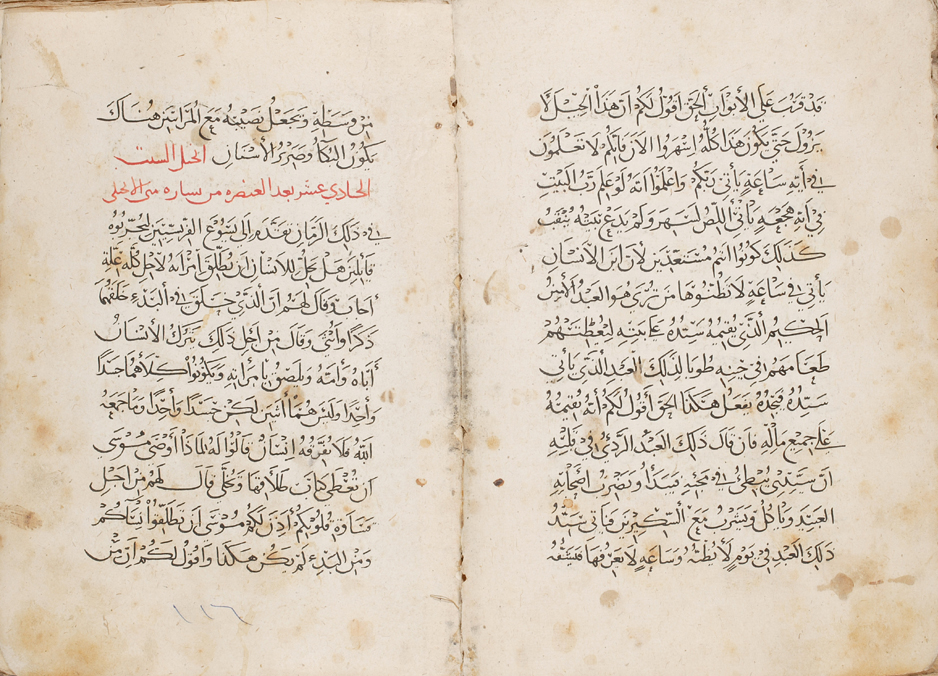 قد قرب على الأبواب الحق اقول لكم ان هذا الجيل لا
يزول حتى يكون هذا كله اسهروا الآن فانكم لا تعلمون
في أية ساعة يأتي ربكم واعلموا انه لو علم رب البيت
في أية هجعة يأتي اللص لسهر ولم يدع بيته ينقب
كذلك كونوا انتم مستعدين لأن ابن الانسان
يأتي في ساعة لا تظنوها من ترى هو العبد الأمين
الحكيم الذي يقيمه سيده على بيته ليعطيهم
طعامهم في حينه طوبا لذلك العبد الذي يأتي
سيده فيجده يفعل هكذا الحق أقول لكم أنه يقيمه
على جميع ماله فان قال ذلك العبد الردي في قلبه
ان سيدي يبطئ في مجيه فيبدأ ويضرب اصحابه
العبيد وياكل ويشرب مع السكيرين فياتي سيد
ذلك العبد في يوم لا يظنه وساعة لا يعرفها فيشقه
من وسطه ويجعل نصيبه مع المرائين هناك
يكون البكا وصرير الأسنان الاحد الست
الحادي عشر بعد العنصره من بشاره متى الانجلى
في ذلك الزمان تقدم إلى يسوع الفريسيين ليجربوه
قايلين هل يحل للانسان ان يطلق امرأته لاجل كل علة
اجاب وقال لهم ان الذي خلق في البدء خلقهما
ذكرا وأنثى وقال من اجل ذلك يترك الأنسان
أباه وأمه ويلصق بامرأته ويكونوا كلاهما جسدًا
واحدًا وليس هما أثنين لكن جسدًا واحدًا وما جمعه
الله فلا يفرقه انسان قالوا له لماذا أوصى موسى
ان تعطى كتاب طلاقها وتخلى قال لهم من اجل
قساوة قلوبكم أذن لكم موسى ان تطلقوا نسأكم
ومن البدء لم يكن هكذا واقول لكم ان من
١١٦